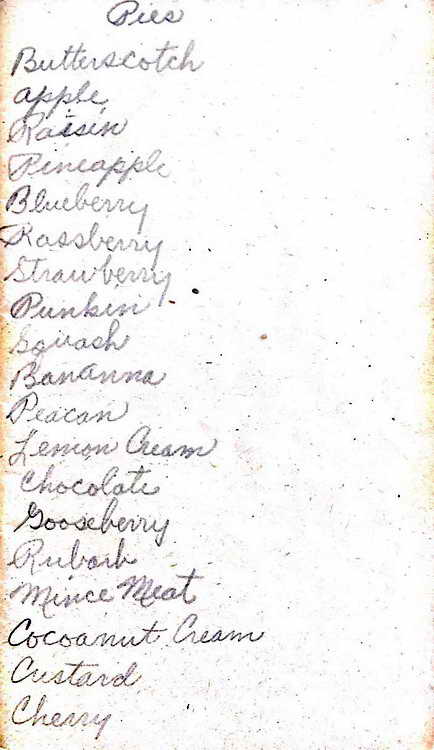 Pies
Butterscotch
apple
Raisin
Pineapple
Blueberry
Rassberry
Strawberry
Punkin
Squash
Bananna
Peacan
Lemon Cream
Chocolate
Gooseberry
Rubarb
Mince Meat
Cocoanut Cream
Custard
Cherry